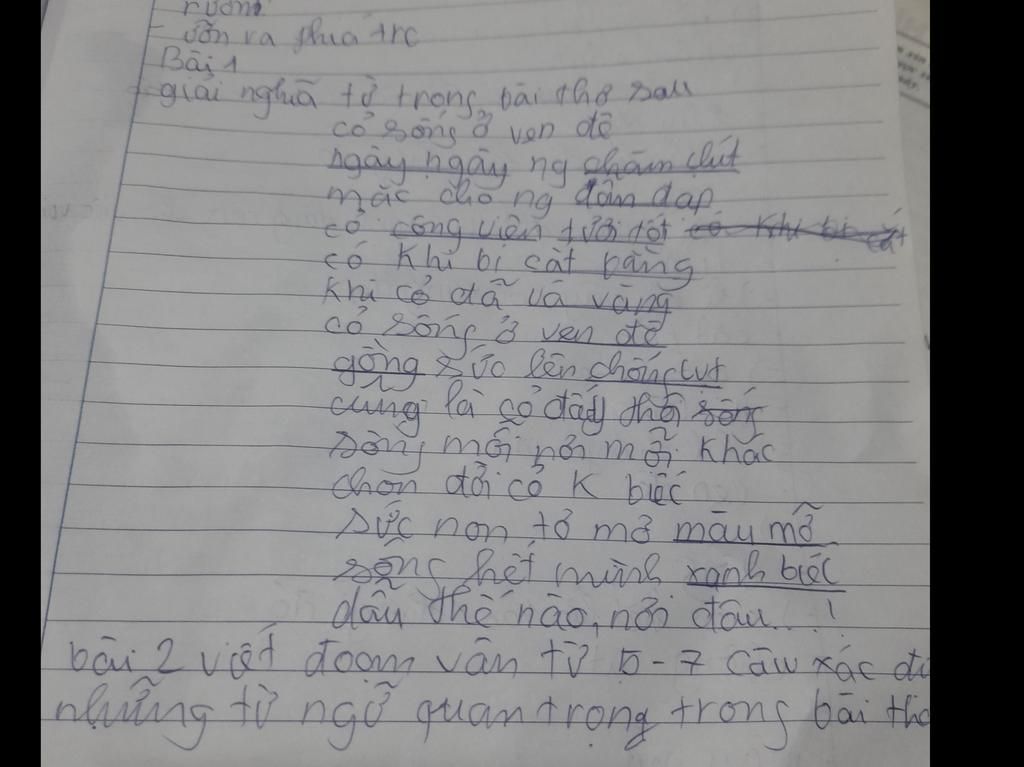 rườm
- vốn ra thua trc
Bài 1
giải nghĩa từ trong bài thơ sau
cỏ sống ở ven đê
ngày ngày ng chăm chút
mặc cho ng dẫm đạp
cỏ công viên tươi tốt có khi bị cắt
có khi bị cắt bằng
khi cỏ đã và vàng
cỏ sống ở ven đê
gồng sức lên chống lụt
cũng là cỏ đấy thôi sống
sống mỗi nơi mỗi khác
chọn đời cỏ k biếc
sức non tơ mỡ màu mỡ
sống hết mình xanh biếc
dẫu thế nào, nơi đâu...!
bài 2 viết đoạn văn từ 5-7 câu xác đị
những từ ngữ quan trọng trong bài thơ